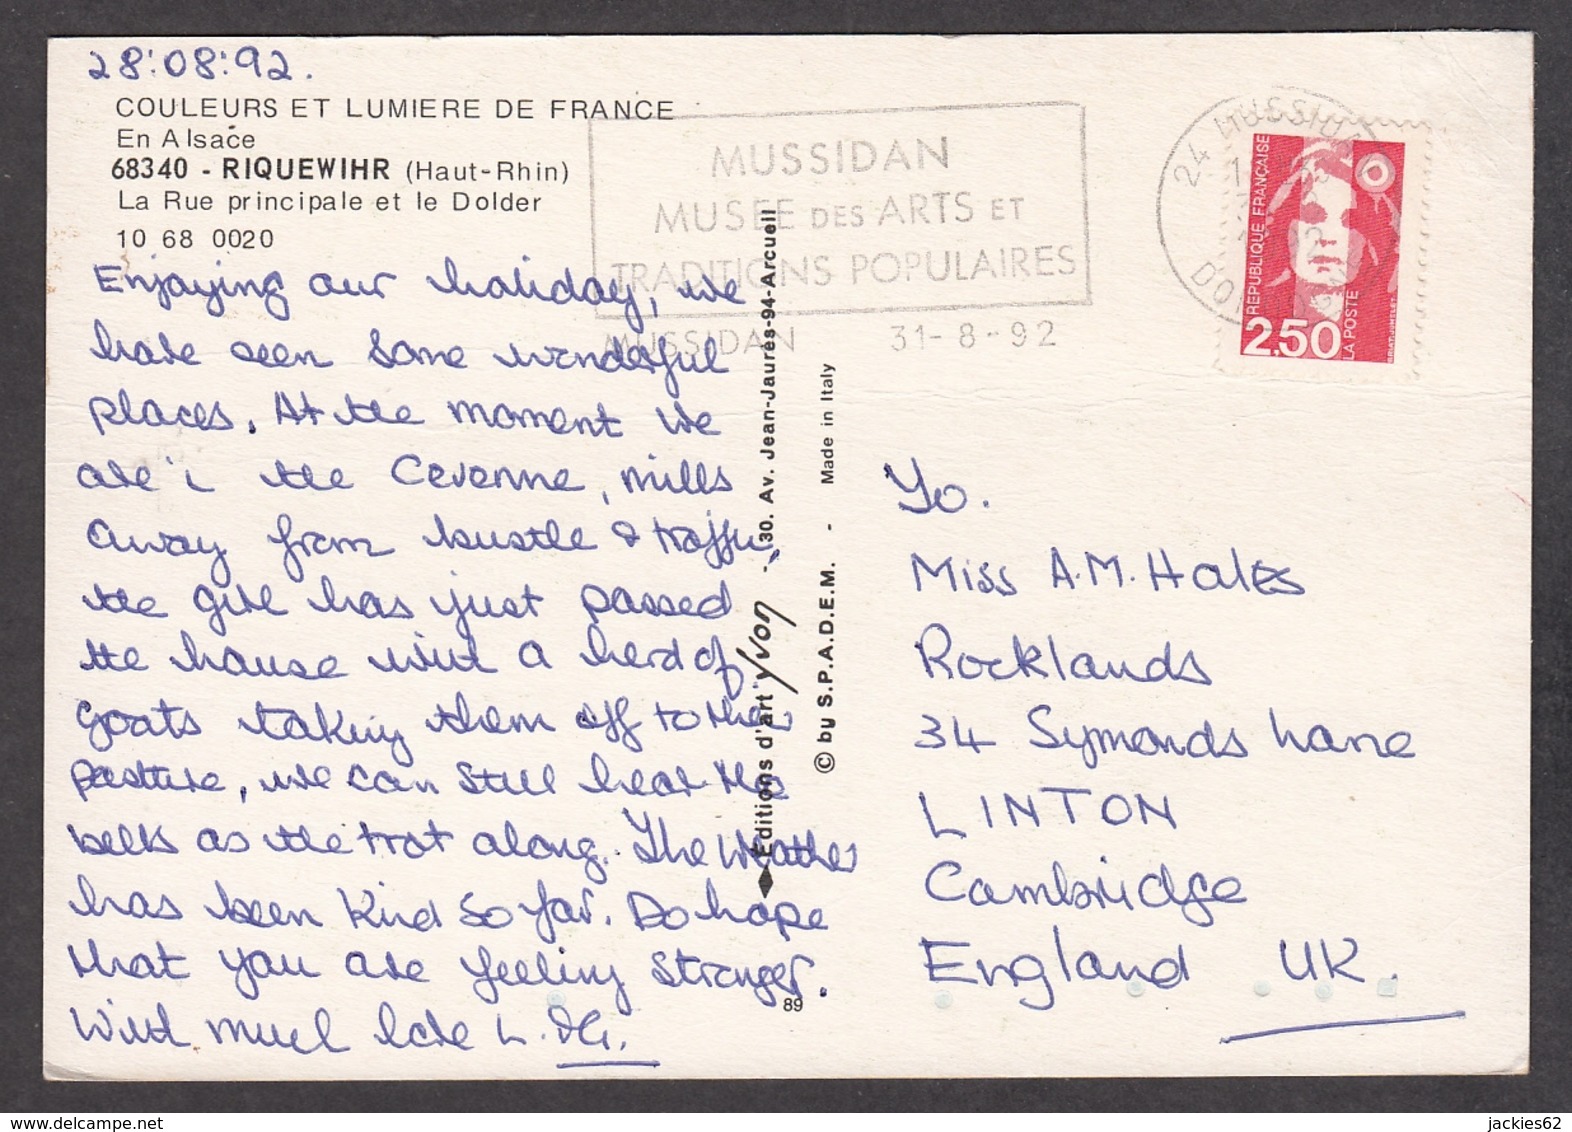 28:08:92.
COULEURS ET LUMIERE DE FRANCE
En Alsace
68340 - RIQUEWIHR (Haut-Rhin)
La Rue principale et le Dolder
10 68 0020
Enjoying our holiday, we
have seen some wonderful
places. At the moment we
are i the Cevenne, mills
away from bustle & traffic,
the girl has just passed
the house with a herd of
goats taking them off to their
pasture, we can still hear the
bells as the trot along. The Weather
has been Kind So far. Do hope
that you are feeling Stronger.
With much love L.
MUSSIDAN
MUSEE DES ARTS ET
TRADITIONS POPULAIRES
MUSSIDAN 31-8-92
24 MUSSIDAN
REPUBLIQUE FRANÇAISE
2,50
LA POSTE
Editions d'art Yvon - 30. Av. Jean-Jaurès-94-Arcueil
© by S.P.A.D.E.M. - Made in Italy
89
To.
Miss A.M. Hales
Rocklands
34 Symonds Lane
LINTON
Cambridge
England UK.
jackies62